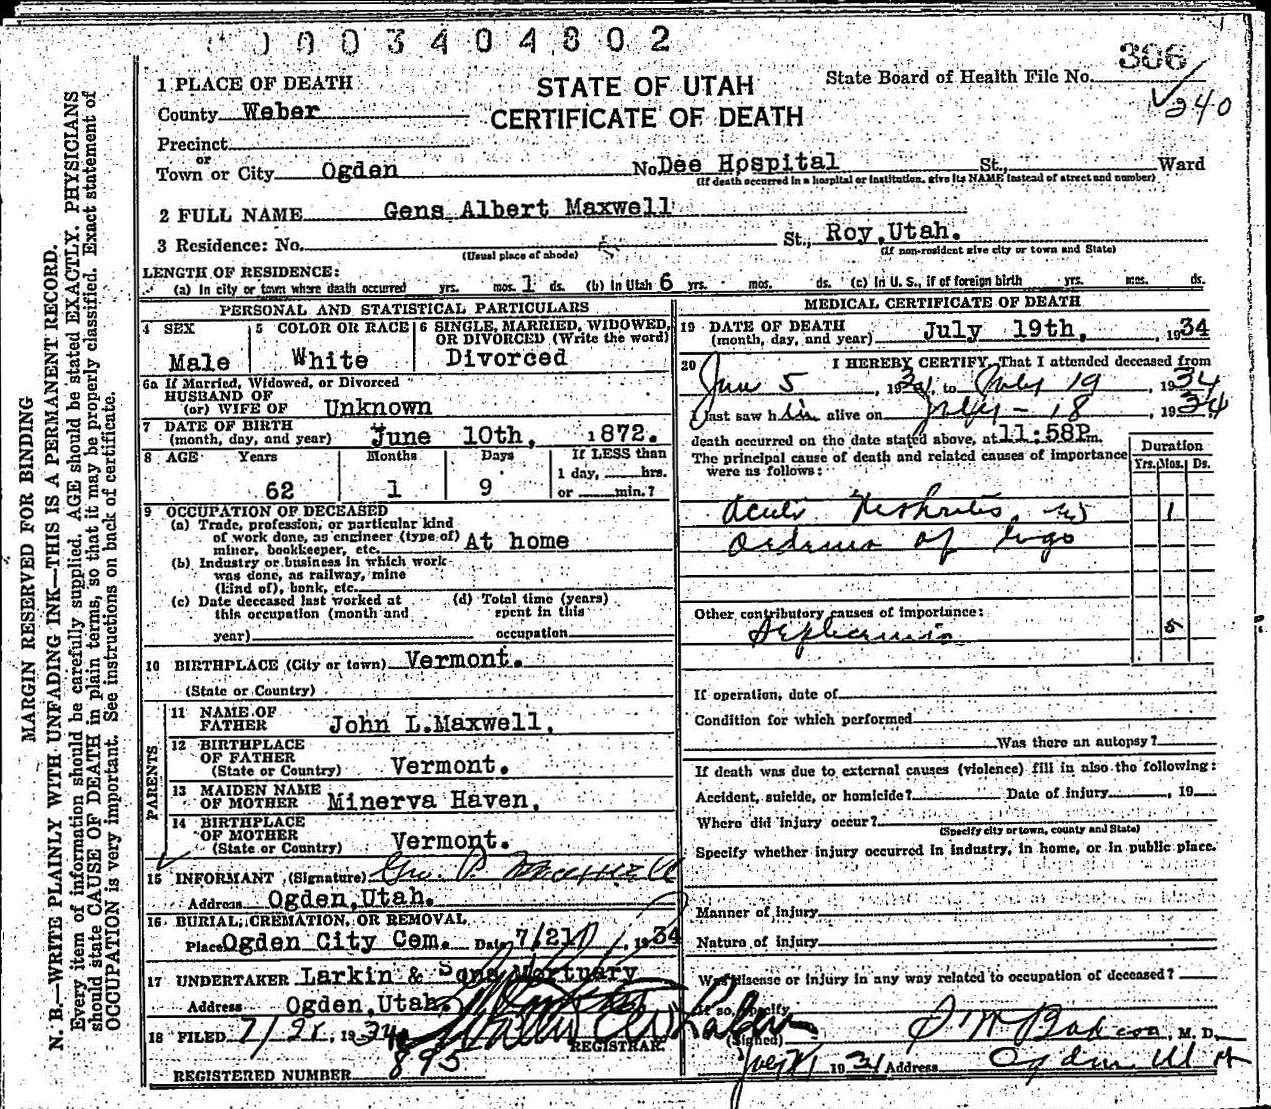 0003404802
396
STATE OF UTAH
CERTIFICATE OF DEATH
State Board of Health File No.
240
1 PLACE OF DEATH
County Weber
Precinct
or
Town or City Ogden No. Dee Hospital St., Ward
(If death occurred in a hospital or institution, give its NAME instead of street and number)
2 FULL NAME Gens Albert Maxwell
3 Residence: No. St., Roy, Utah.
(Usual place of abode) (If non-resident give city or town and State)
LENGTH OF RESIDENCE:
(a) In city or town where death occurred yrs. mos. 1 ds. (b) in Utah 6 yrs. mos. ds. (c) In U. S., if of foreign birth yrs. mos. ds.
PERSONAL AND STATISTICAL PARTICULARS
4 SEX
Male
5 COLOR OR RACE
White
6 SINGLE, MARRIED, WIDOWED, OR DIVORCED (Write the word)
Divorced
6a If Married, Widowed, or Divorced
HUSBAND OF
(or) WIFE OF Unknown
7 DATE OF BIRTH
(month, day, and year) June 10th, 1872.
8 AGE Years Months Days If LESS than
1 day, hrs.
62 1 9 or min.?
9 OCCUPATION OF DECEASED
(a) Trade, profession, or particular kind
of work done, as engineer (type of)
miner, bookkeeper, etc. At home
(b) Industry or business in which work
was done, as railway, mine
(kind of), bank, etc.
(c) Date deceased last worked at
this occupation (month and
year)
(d) Total time (years)
spent in this
occupation
10 BIRTHPLACE (City or town) Vermont.
(State or Country)
PARENTS
11 NAME OF
FATHER John L. Maxwell,
12 BIRTHPLACE
OF FATHER
(State or Country) Vermont.
13 MAIDEN NAME
OF MOTHER Minerva Haven,
14 BIRTHPLACE
OF MOTHER
(State or Country) Vermont.
15 INFORMANT (Signature) Geo. P. Maxwell
Address Ogden, Utah.
16 BURIAL, CREMATION, OR REMOVAL
Place Ogden City Cem. Date 7/21, 1934
17 UNDERTAKER Larkin & Sons Mortuary
Address Ogden, Utah.
18 FILED 7/21, 1934
REGISTRAR.
REGISTERED NUMBER 895
MEDICAL CERTIFICATE OF DEATH
19 DATE OF DEATH
(month, day, and year) July 19th, 1934
20 I HEREBY CERTIFY, That I attended deceased from
June 5, 1934, to July 19, 1934
I last saw him alive on July - 18, 1934
death occurred on the date stated above, at 11:58P.m.
The principal cause of death and related causes of importance
were as follows:
Duration
Yrs. Mos. Ds.
Acute Nephritis 1
of
Other contributory causes of importance:
5
If operation, date of
Condition for which performed
Was there an autopsy?
If death was due to external causes (violence) fill in also the following:
Accident, suicide, or homicide? Date of injury , 19
Where did injury occur?
(Specify city or town, county and State)
Specify whether injury occurred in industry, in home, or in public place.
Manner of injury
Nature of injury
Was disease or injury in any way related to occupation of deceased?
If so, specify
(Signed) M. D.
July 21 1934 Address Ogden Utah
MARGIN RESERVED FOR BINDING
N. B.—WRITE PLAINLY WITH UNFADING INK—THIS IS A PERMANENT RECORD.
Every item of information should be carefully supplied. AGE should be stated EXACTLY. PHYSICIANS
should state CAUSE OF DEATH in plain terms, so that it may be properly classified. Exact statement of
OCCUPATION is very important. See instructions on back of certificate.